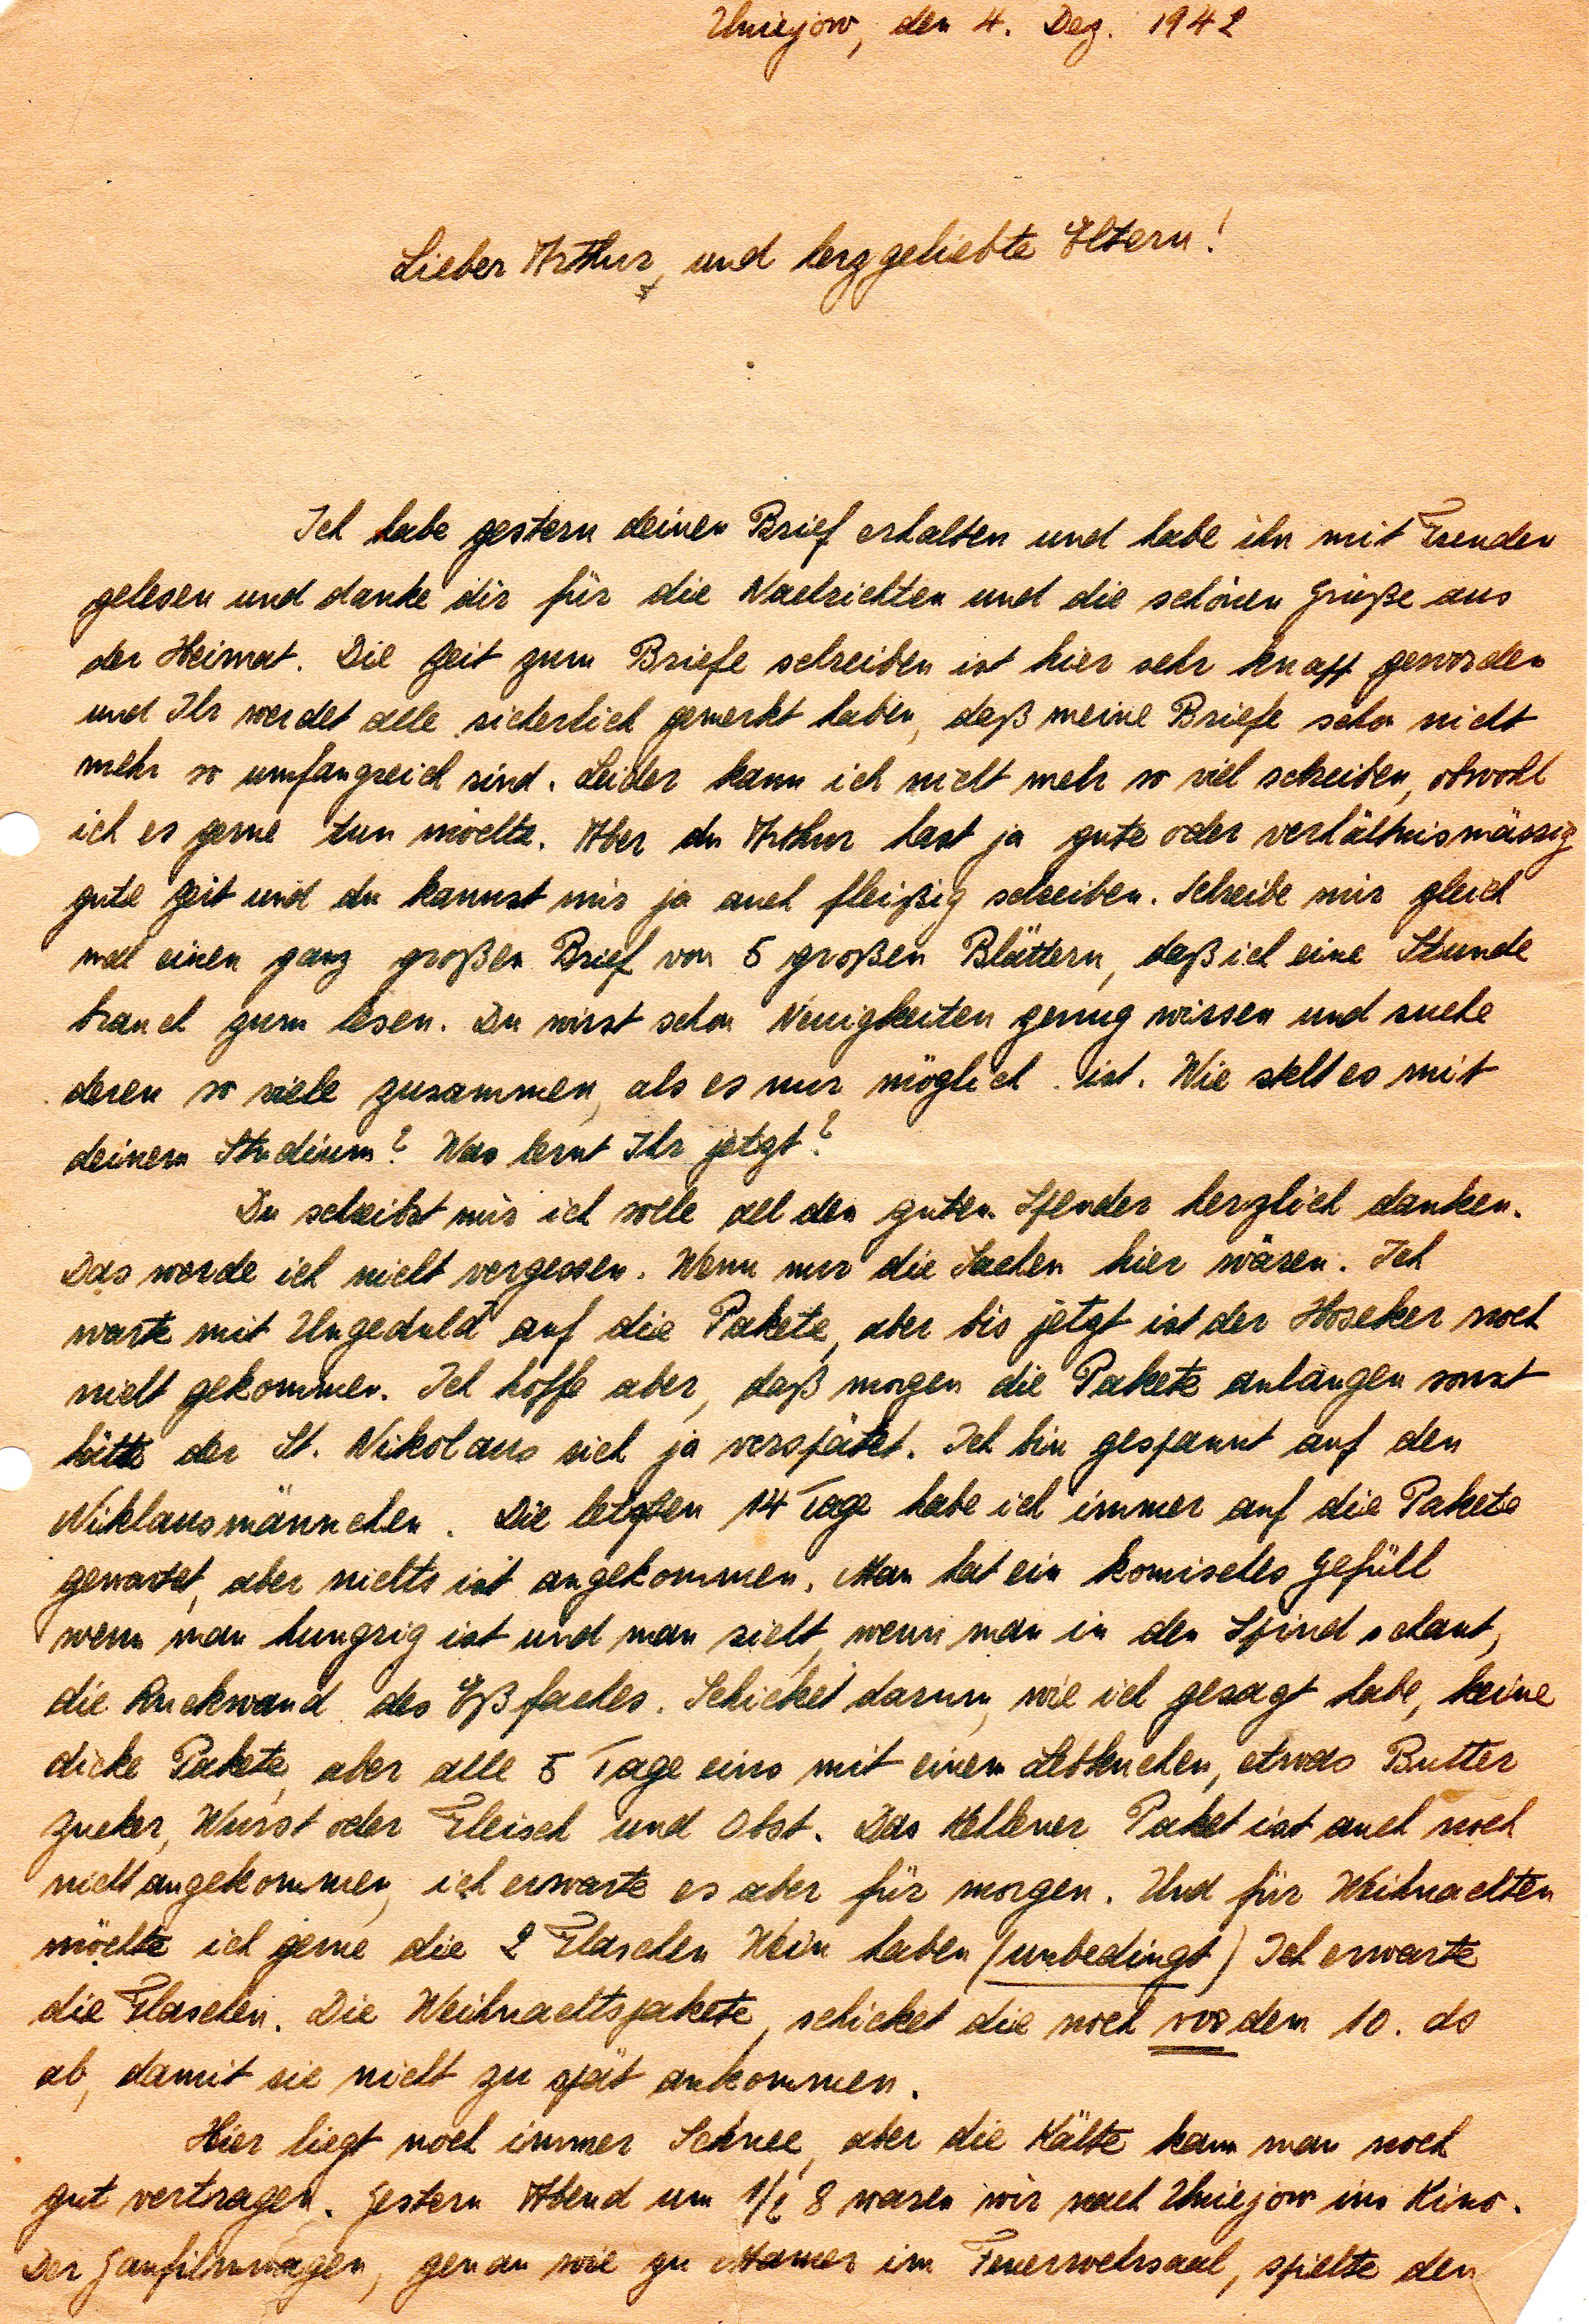 Uniejow, den 4. Dez. 1942
Lieber Arthur, und herzgeliebte Eltern!
Ich habe gestern deinen Brief erhalten und habe ihn mit Freuden
gelesen und danke dir für die Nachrichten und die schönen Grüße aus
der Heimat. Die Zeit zum Briefe schreiben ist hier sehr knapp geworden
und Ihr werdet alle sicherlich gemerkt haben, daß meine Briefe schon nicht
mehr so umfangreich sind. Leider kann ich nicht mehr so viel schreiben, obwohl
ich es gerne tun möchte. Aber du Arthur hast ja gute oder verhältnismässig
gute Zeit und du kannst mir ja auch fleißig schreiben. Schreibe mir gleich
mal einen ganz großen Brief von 5 großen Blättern, daß ich eine Stunde
brauch zum lesen. Du wirst schon Neuigkeiten genug wissen und suche
deren so viele zusammen, als es nur möglich ist. Wie steht es mit
deinem Studium? Was lernt Ihr jetzt?
Du schreibst mir ich solle all den guten Spender herzlich danken.
Das werde ich nicht vergessen. Wenn nur die Sachen hier wären. Ich
warte mit Ungeduld auf die Pakete, aber bis jetzt ist der Hoseker noch
nicht gekommen. Ich hoffe aber, daß morgen die Pakete anlangen sonst
hätte der St. Nikolaus sich ja verspätet. Ich bin gespannt auf den
Niklausmännchen. Die letzten 14 Tage habe ich immer auf die Pakete
gewartet, aber nichts ist angekommen. Man hat ein komisches Gefühl
wenn man hungrig ist und man sieht, wenn man in den Spind schaut,
die Rückwand des Eßfaches. Schicket darum, wie ich gesagt habe, keine
dicke Pakete, aber alle 5 Tage eins mit einem Lebkuchen, etwas Butter
Zucker, Wurst oder Fleisch und Obst. Das Kellener Paket ist auch noch
nicht angekommen, ich erwarte es aber für morgen. Und für Weihnachten
möchte ich gerne die 2 Flaschen Wein haben (unbedingt) Ich erwarte
die Flaschen. Die Weihnachtspakete, schicket die noch vor dem 10. ds
ab, damit sie nicht zu spät ankommen.
Hier liegt noch immer Schnee, aber die Kälte kann man noch
gut vertragen. Gestern Abend um 1/2 8 waren wir nach Uniejow ins Kino.
Der Gaufilmwagen, genau wie zu Mamer im Feuerwehrsaal, spielte den